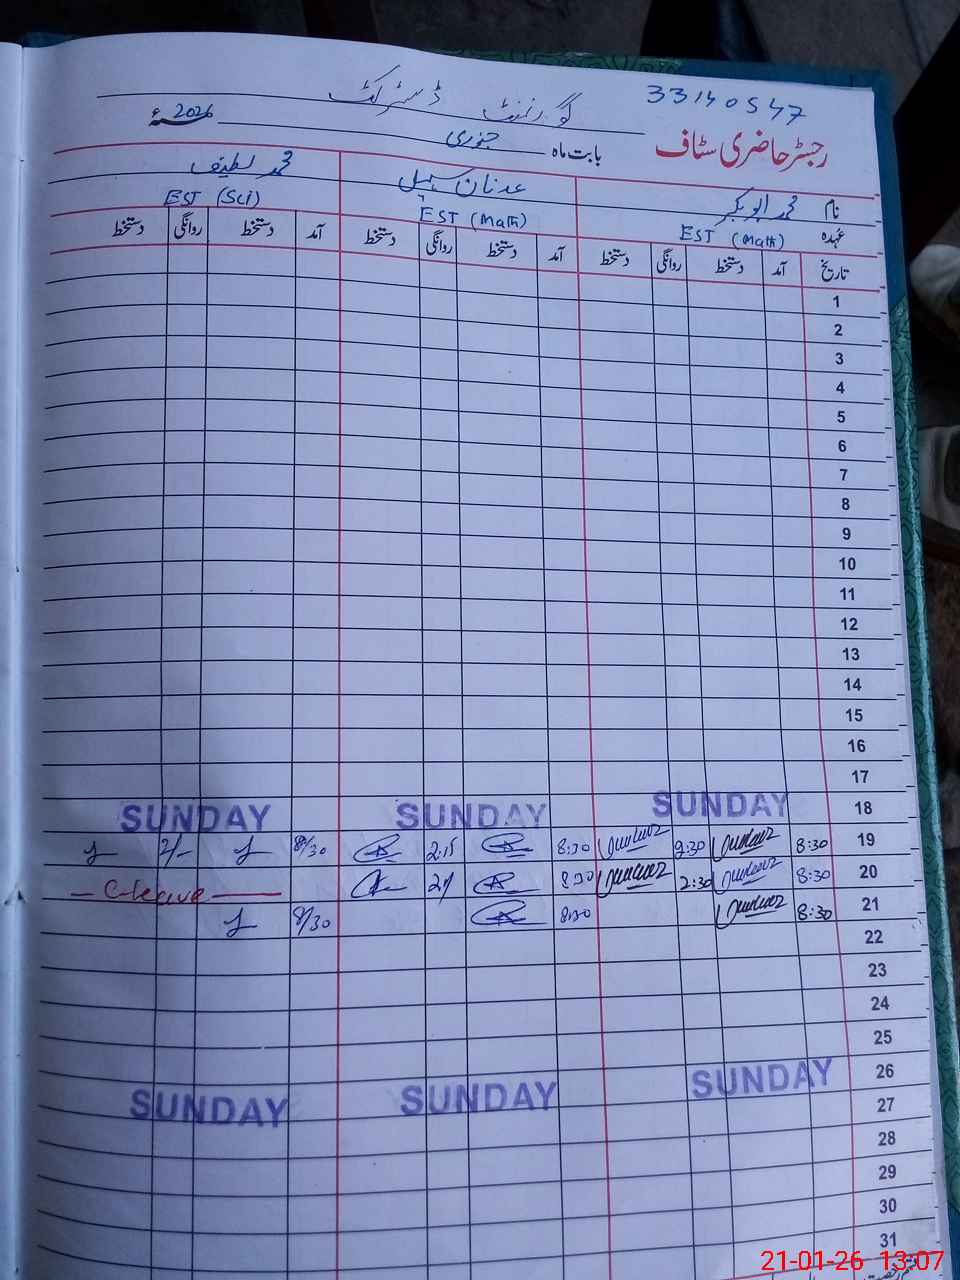 33140547
گورنمنٹ ڈسٹرکٹ
رجسٹر حاضری سٹاف
بابت ماہ جنوری 2026ء
نام محمد ابوبکر عدنان سہیل محمد لطیف
عہدہ EST (Math) EST (Math) EST (Sci)
تاریخ آمد دستخط روانگی دستخط آمد دستخط روانگی دستخط آمد دستخط روانگی دستخط
1
2
3
4
5
6
7
8
9
10
11
12
13
14
15
16
17
18 SUNDAY SUNDAY SUNDAY
19 8:30 2:30 8:30 2:15 8/30 2/-
20 8:30 2:30 8:30 2/ — C-leave —
21 8:30 8:30 8/30
22
23
24
25
26 SUNDAY SUNDAY SUNDAY
27
28
29
30
31
21-01-26 13:07